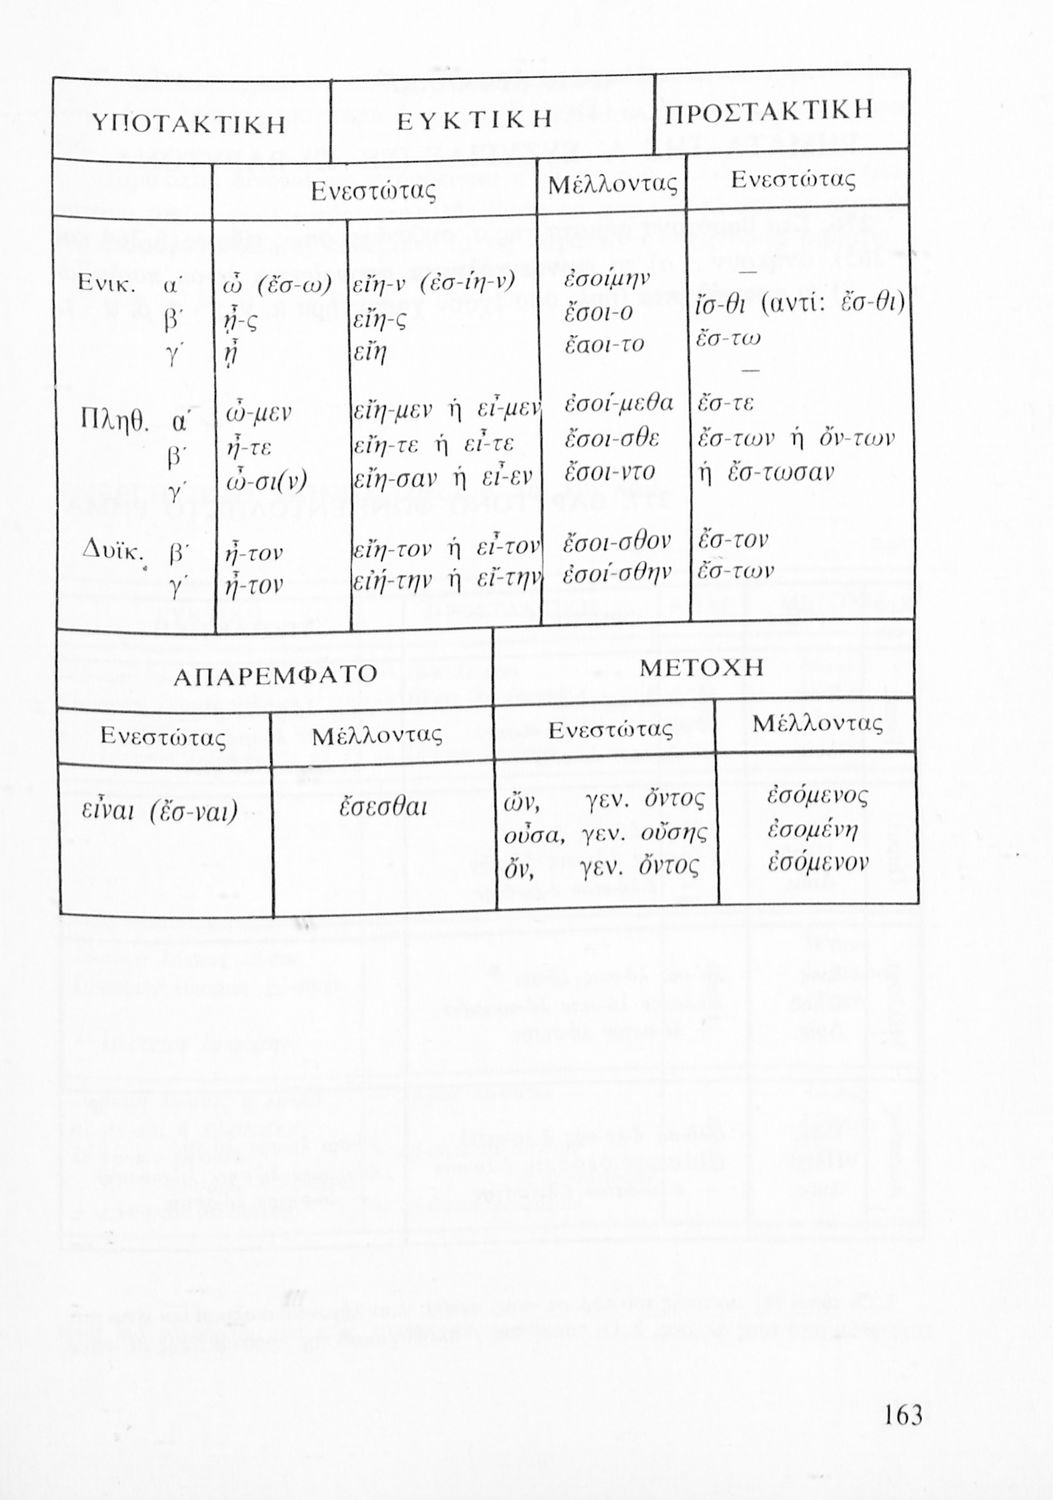 ΥΠΟΤΑΚΤΙΚΗ ΕΥΚΤΙΚΗ ΠΡΟΣΤΑΚΤΙΚΗ
Ενεστώτας Μέλλοντας Ενεστώτας
Ενικ. α΄ ὦ (ἔσ-ω) εἴην-ν (ἐσ-ίη-ν) ἐσοίμην —
β΄ ᾖ-ς εἴη-ς ἔσοι-ο ἴσ-θι (αντί: ἔσ-θι)
γ΄ ᾖ εἴη ἔσοι-το ἔσ-τω
—
Πληθ. α΄ ὦ-μεν εἴη-μεν ή εἶ-μεν ἐσοί-μεθα ἔσ-τε
β΄ ἦ-τε εἴη-τε ή εἶ-τε ἔσοι-σθε ἔσ-των ή ὄν-των
γ΄ ὦ-σι(ν) εἴη-σαν ή εἶ-εν ἔσοι-ντο ή ἔσ-τωσαν
Δυϊκ. β΄ ἦ-τον εἴη-τον ή εἶ-τον ἔσοι-σθον ἔσ-τον
γ΄ ἦ-τον εἰή-την ή εἴ-την ἐσοί-σθην ἔσ-των
ΑΠΑΡΕΜΦΑΤΟ ΜΕΤΟΧΗ
Ενεστώτας Μέλλοντας Ενεστώτας Μέλλοντας
εἶναι (ἔσ-ναι) ἔσεσθαι ὤν, γεν. ὄντος ἐσόμενος
οὖσα, γεν. οὔσης ἐσομένη
ὄν, γεν. ὄντος ἐσόμενον
163